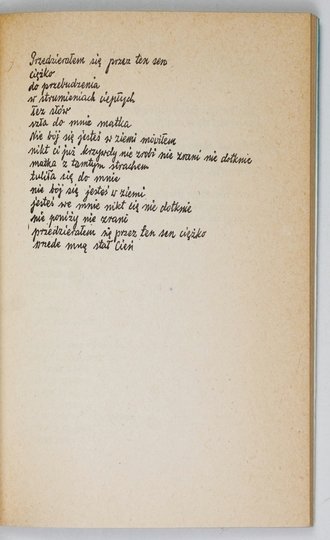 Przedzierałem się przez ten sen
ciężko
do przebudzenia
w strumieniach ciepłych
łez słów
szła do mnie matka
Nie bój się jesteś w ziemi mówiłem
nikt ci już krzywdy nie zrobi nie zrani nie dotknie
matka z tamtym strachem
tuliła się do mnie
nie bój się jesteś w ziemi
jesteś we mnie nikt cię nie dotknie
nie poniży nie zrani
przedzierałem się przez ten sen ciężko
przede mną stał Cień